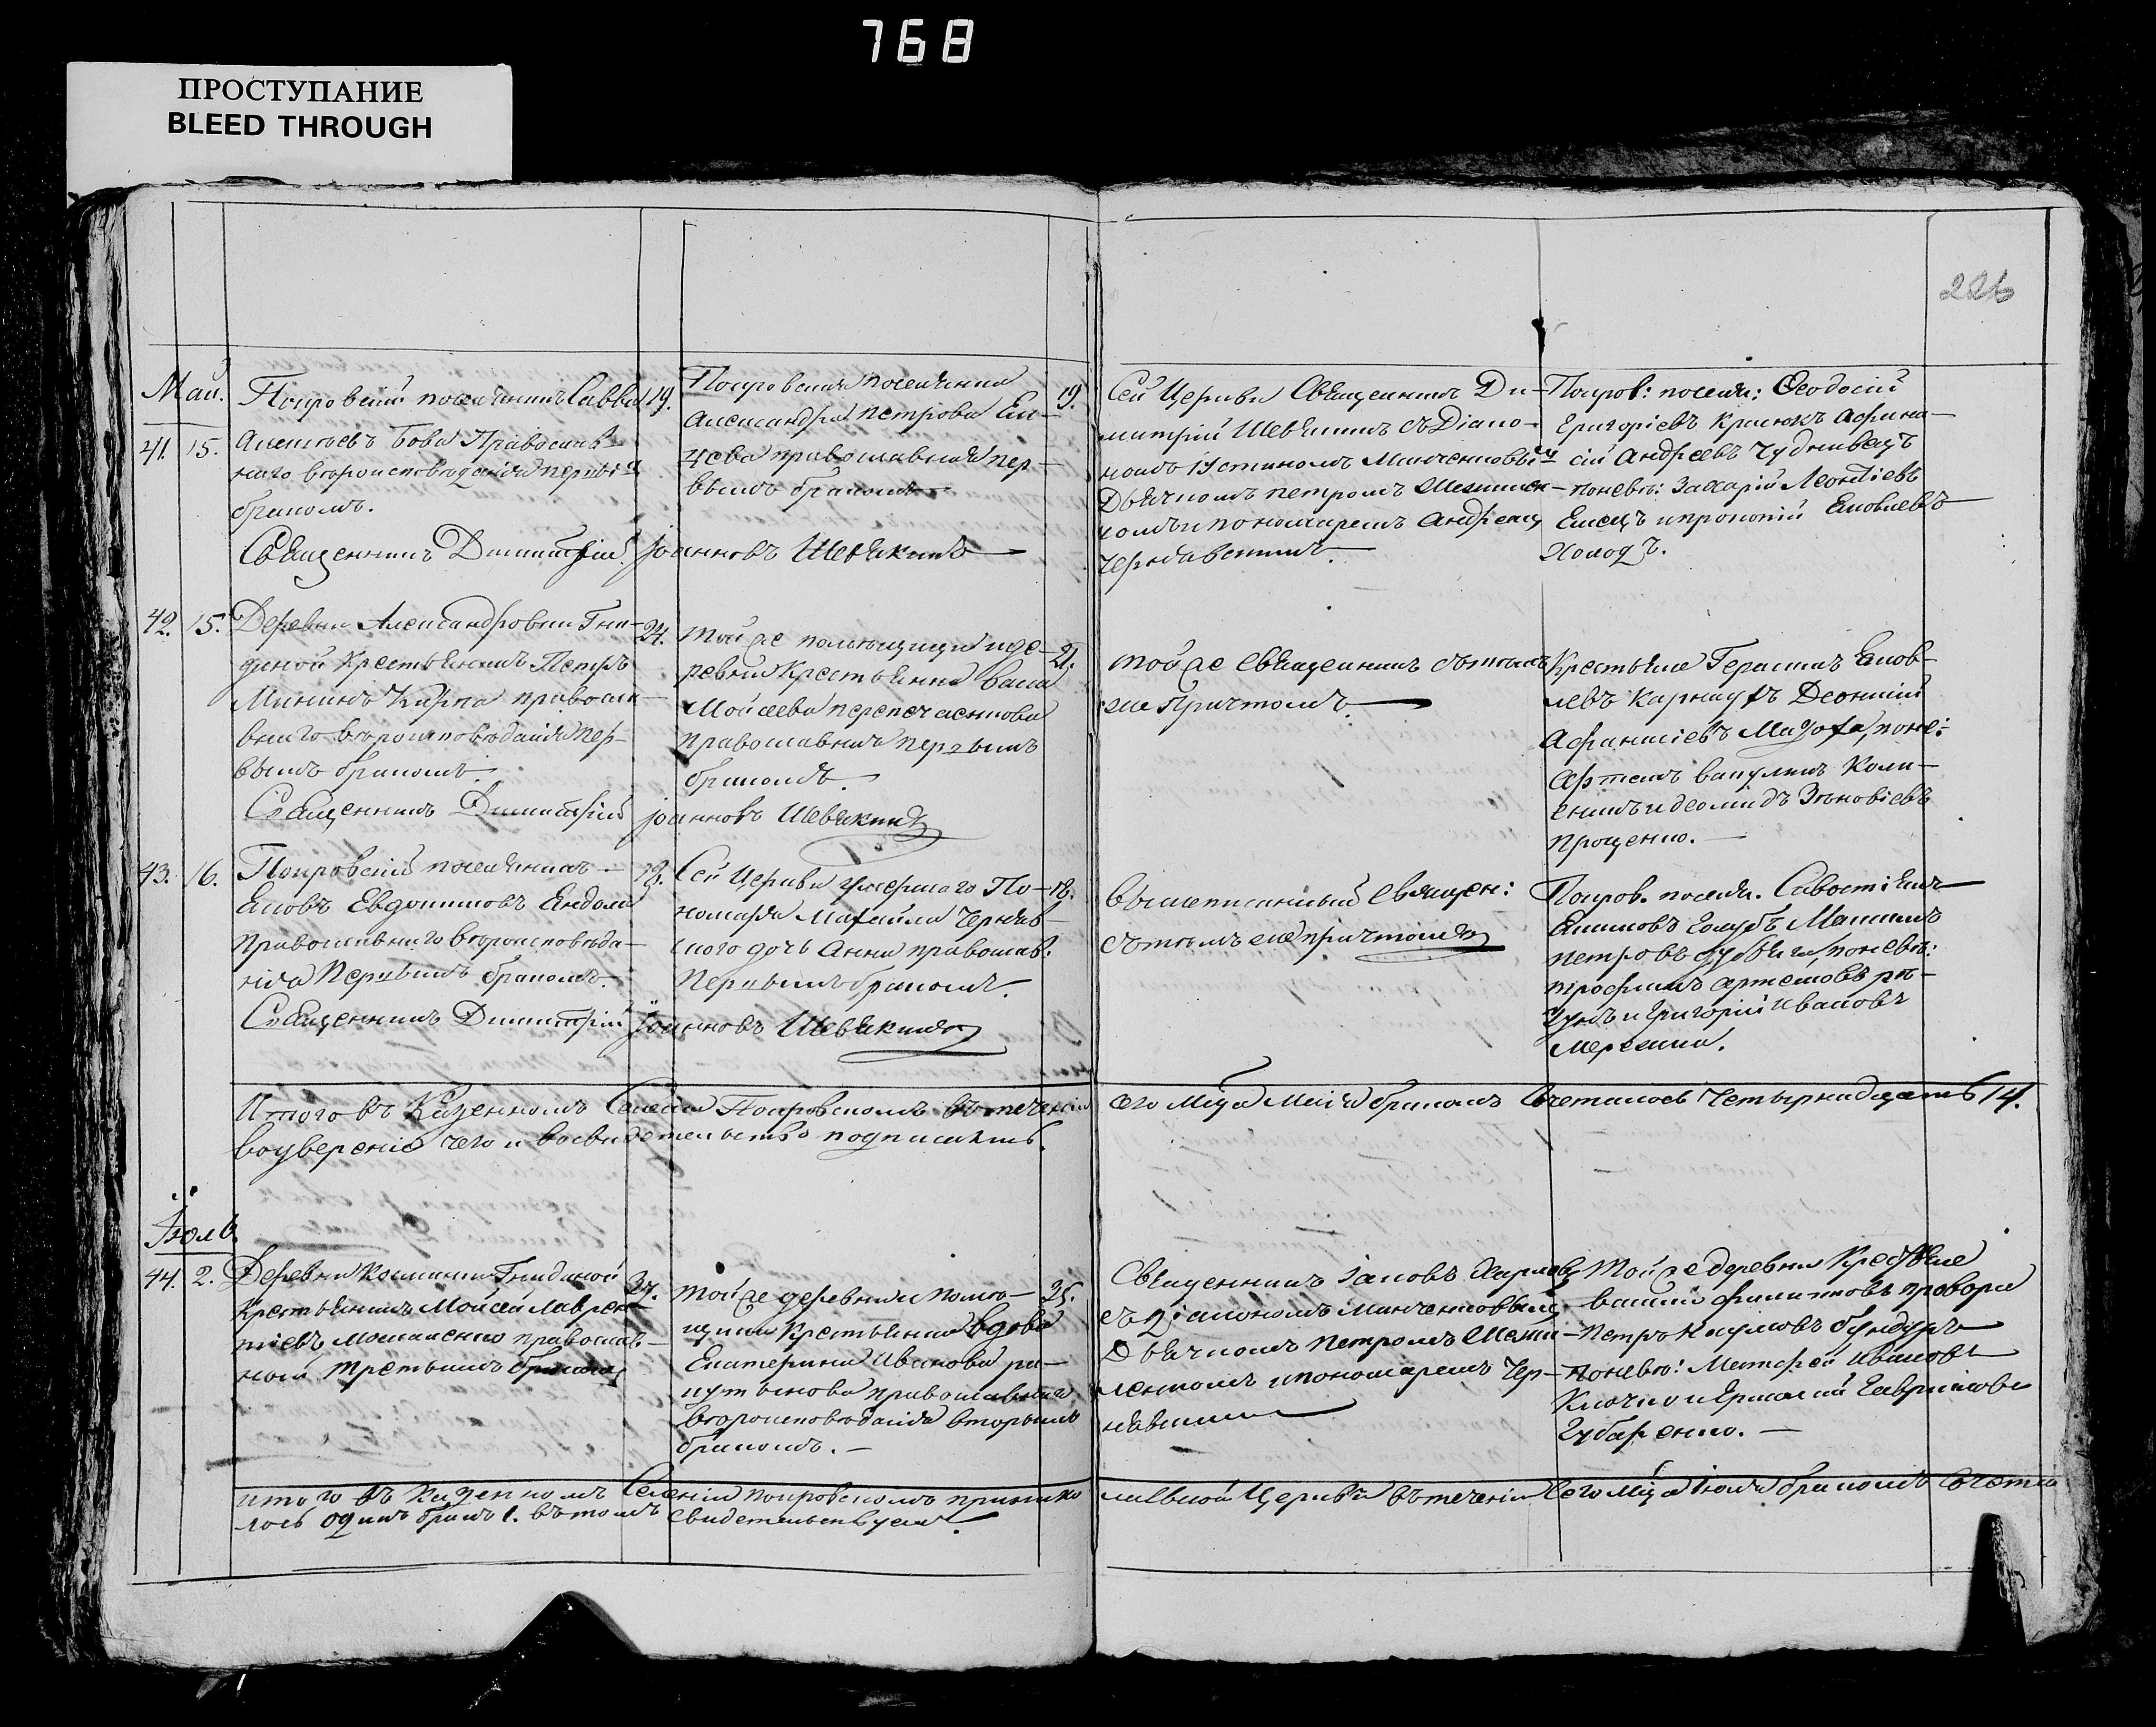 768
ПРОСТУПАНИЕ
BLEED THROUGH
226
Май.
41. 15.
Покровскій поселянинъ Савва
Алексѣевъ Бова Православ-
наго вѣроисповѣданія первы
бракомъ.
19.
Покровская поселянка
Александра Петрова Ел-
цева православная пер-
вымъ бракомъ
19.
Сей Церкви Священникъ Ди-
митрій Шевякинъ съ Діако-
номъ Іустиномъ Минченковым
Дьячкомъ Петромъ
и пономаремъ Андреем
Чернявскимъ.
Покров: посел: Ѳеодосій
Григоріевъ Афана-
сій Андреевъ Чуднивецъ
поневѣ: Захарій Леонтіевъ
Елецъ и Прокопій Яковлевъ
Холодъ.
Священникъ Димитрій Іоанновъ Шевякинъ
42. 15.
Деревни Александровки Гни-
диной Крестьянинъ Петръ
Мининъ Кирпа правосла-
внаго вѣроисповѣданія пер-
вымъ бракомъ.
24.
Той же помѣщицы и де-
ревни Крестьянка Васса
Моисеева
православная первымъ
бракомъ.
21.
Той же священникъ съ тѣмъ
же Причтомъ.
Крестьяне Герасимъ Яков-
левъ Карнаухъ Деонисій
Афанасіевъ поне:
Артемъ Вакулинъ Коли-
сникъ и Деомидъ Зѣновіевъ
Проценко.
Священникъ Димитрій Іоанновъ Шевякинъ
43. 16.
Покровскій поселянинъ
Яковъ Евдокимовъ Яндола
Православнаго вѣроисповѣда-
нія Первымъ бракомъ.
18.
Сей Церкви умершаго По-
номаря Михаила Черняв-
скаго дочь Анна православ:
Первымъ бракомъ.
18.
Вышеписанный Священ:
съ тѣмъ же причтомъ
Покров. поселя. Савостіянъ
Якимовъ Голубъ Максимъ
Петровъ поневѣ:
Трофимъ Артемовъ
и Григорій Ивановъ
Мережка.
Священникъ Димитрій Іоанновъ Шевякинъ
Итого въ Казенномъ Селеніи Покровскомъ въ теченіи сего Мца Маія бракомъ сочеталось Четырнадцать 14.
во увереніе чего и во свидетельство подписались
Іюль
44. 2.
Деревни Гнидиной
Крестьянинъ Мойсей Лаврен-
тіевъ православ-
ной третьимъ бракомъ
37.
Той же деревни и помѣ-
щицы Крестьянка вдова
Екатерина Иванова
православнаго
вѣроисповѣданія вторымъ
бракомъ.
35.
Священникъ Іаковъ
съ Діакономъ Минченковымъ
Дьячкомъ Петромъ
и пономаремъ Чер-
нявским
Той же деревни Крестьяне
Филиповъ
Петръ Наумовъ Бундуръ
поневѣ: Матфей Ивановъ
Клочко и Ермолай Гавриловъ
Губаренко.
Итого въ Казенномъ Селеніи Покровскомъ при Николаевской Церкви въ теченіи сего Мца Іюля бракомъ сочета
лось одинъ бракъ 1. въ томъ свидетельствуем.